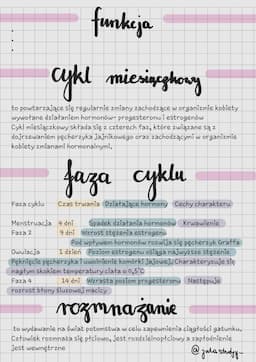 funkcja
cykl miesiączkowy
to powtarzające się regularnie zmiany zachodzące w organizmie kobiety
wywołane działaniem hormonów progesteronu i estrogenów
Cykl miesiączkowy składa się z czterech faz, które związane są z
dojrzewaniem pęcherzyka jajnikowego oraz zachodzącymi w organizmie
kobiety zmianami hormonalnymi.
faza cyklu
Faza cyklu Czas trwania Działające hormony Cechy charakteru
Menstruacja 4 dni Spadek działania hormonów Krwawienie
Faza 2 9 dni Wzrost stężenia estrogenu
Pod wpływem hormonów rozwija się pęcherzyk Graffa
Owulacja 1 dzień Poziom estrogenu osiąga najwyższe stężenie
Pęknięcie pęcherzyka i uwolnienie komórki jajowej. Charakteryzuje się
nagłym skokiem temperatury ciała o 0,5°C
Faza 4 14 dni Wzrasta poziom progesteronu Następuje
rozrost błony śluzowej macicy
rozmnażanie
to wydawanie na świat potomstwa w celu zapewnienia ciągłości gatunku.
Człowiek rozmnaża się płciowo, jest rozdzielnopłciowy a zapłodnienie
jest wewnętrzne